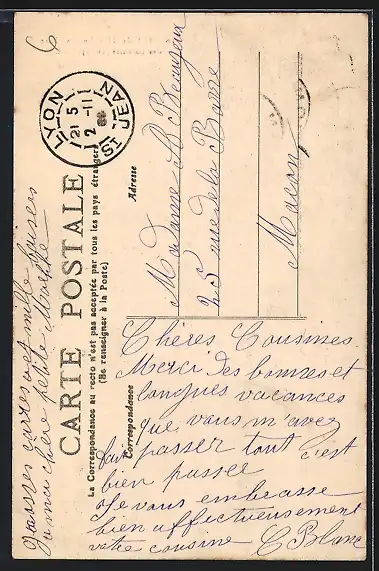 CARTE POSTALE
La Correspondance au recto n'est pas acceptée par tous les pays étrangers
(Se renseigner à la Poste)
Correspondance
Adresse
LYON
21 5
2 -11
ST JEAN
Madame B. Beaujeux
25 rue de la Barre
Macon
Chères Cousines
Merci des bonnes et
longues vacances
que vous m'avez
fait passer tout c'est
bien passée
Je vous embrasse
bien affectueusement
votre cousine C Blanc
grosses caresses et mille baisers
a ma chère petite